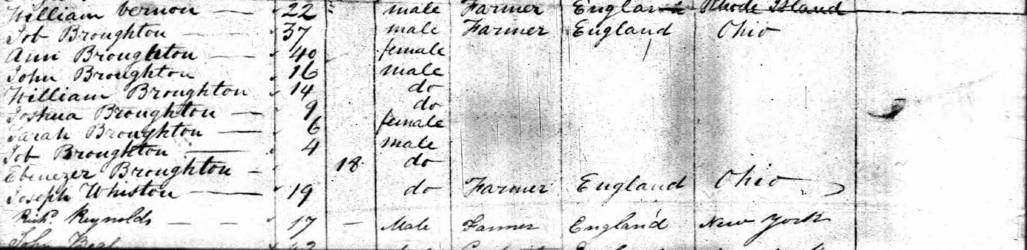 William Vernon 22 male Farmer England Rhode Island
Job Broughton — 37 male Farmer England Ohio
Ann Broughton — 40 female
John Broughton 16 male
William Broughton 14 do
Joshua Broughton — 9 do
Sarah Broughton — 6 female
Job Broughton — 4 male
Ebenezer Broughton – 18 do
Joseph Whiston — — 19 do Farmer England Ohio
Richd Reynolds — 17 — Male Farmer England New York
John